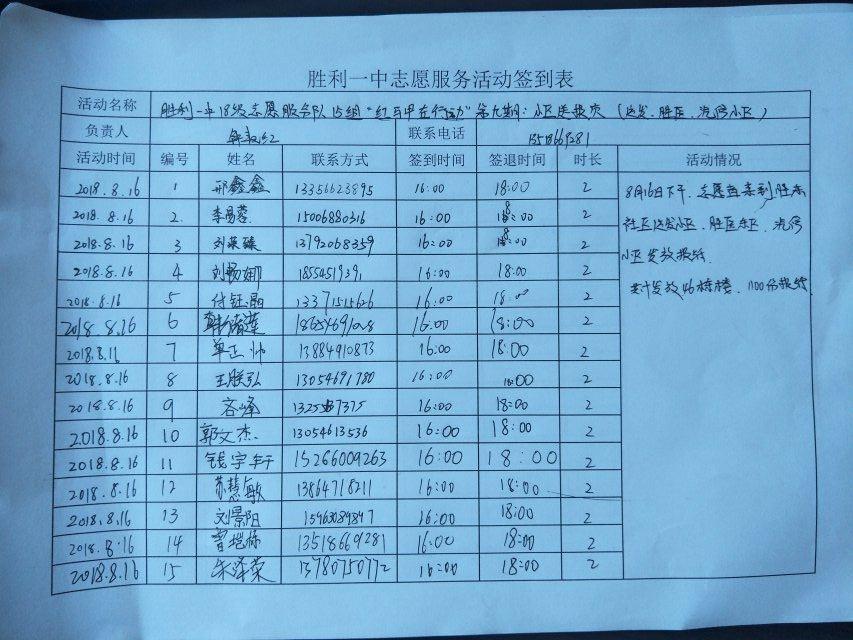 胜利一中志愿服务活动签到表
活动名称 胜利一中18级志愿服务队15组“红马甲在行动”第九期：小区送报纸
负责人 联系电话 13518669281
活动时间 编号 姓名 联系方式 签到时间 签退时间 时长 活动情况
2018.8.16 1 邢鑫鑫 13356623895 16:00 18:00 2
2018.8.16 2 李易蓉 15006880316 16:00 18:00 2
2018.8.16 3 13792068359 16:00 18:00 2
2018.8.16 4 刘畅娜 16:00 18:00 2
2018.8.16 5 付钰晶 13371515626 16:00 18:00 2
2018.8.16 6 16:00 18:00 2
2018.8.16 7 单正帅 13884910873 16:00 18:00 2
2018.8.16 8 王朕弘 13054691780 16:00 18:00 2
2018.8.16 9 16:00 18:00 2
2018.8.16 10 郭文杰 13054613536 16:00 18:00 2
2018.8.16 11 钱宇轩 15266009263 16:00 18:00 2
2018.8.16 12 苏慧敏 13864718211 16:00 18:00 2
2018.8.16 13 刘景阳 16:00 18:00 2
2018.8.16 14 曹垲栋 13518669281 16:00 18:00 2
2018.8.16 15 朱泽荣 13780750772 16:00 18:00 2
8月16日下午，志愿者来到胜东
社区达发小区、胜臣东区、汽修
小区发放报纸
共计发放46栋楼，1100份报纸